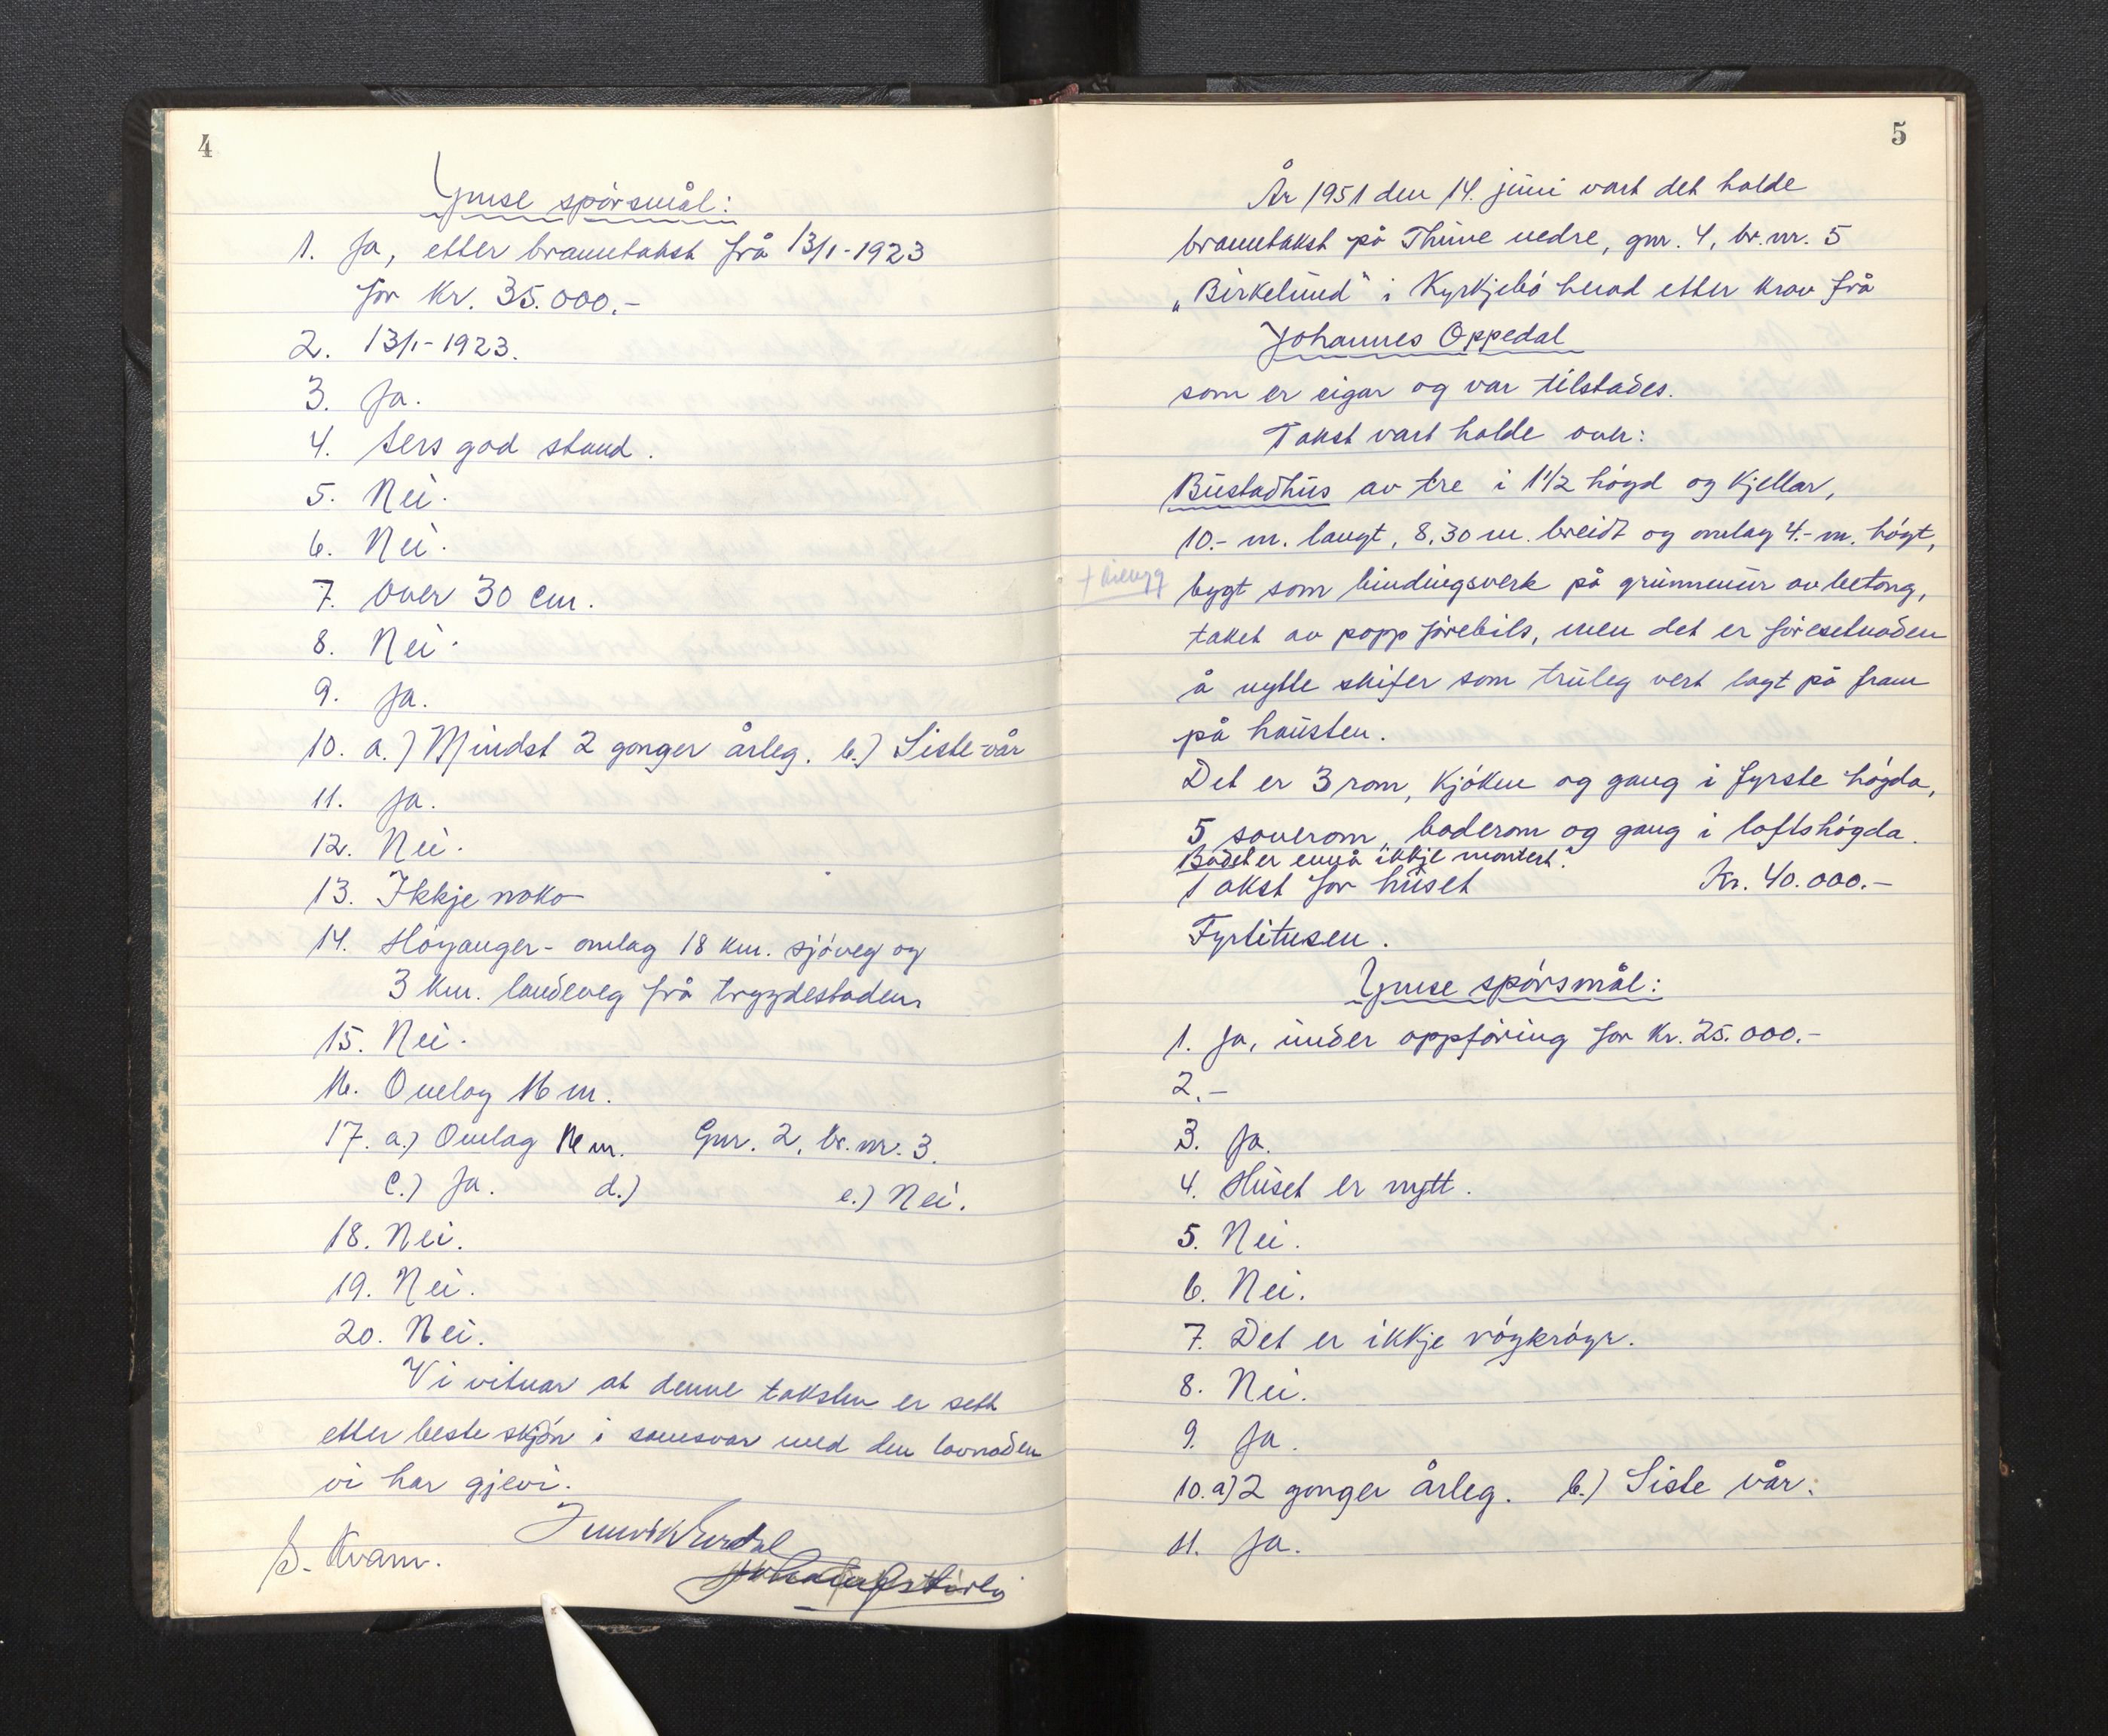 4
Ymse spørsmål:
1. Ja, etter branntakst frå 13/1-1923
for Kr. 35.000.-
2. 13/1-1923.
3. Ja.
4. Sers god stand.
5. Nei.
6. Nei.
7. Over 30 cm.
8. Nei.
9. Ja.
10. a.) Mindst 2 gonger årleg. b.) Siste vår
11. Ja.
12. Nei.
13. Ikkje noko
14. Høyanger - omlag 18 km. sjøveg og
3 km. landeveg frå trygdestaden
15. Nei.
16. Omlag 16 m.
17. a.) Omlag 16 m. Gnr. 2, br. nr. 3.
c.) Ja. d.) e.) Nei.
18. Nei.
19. Nei.
20. Nei.
Vi vitnar at denne taksten er sett
etter beste skjøn i samsvar med den lovnaden
vi har gjevi.
S. Kvam.
5
År 1951 den 14. juni vart det halde
branntakst på Thune nedre, gnr. 4, br. nr. 5
„Birkelund" i Kyrkjebø herad etter krav frå
Johannes Oppedal
som er eigar og var tilstades.
Takst vart halde over:
Bustadhus av tre i 1 1/2 høgd og kjellar,
10.- m. langt, 8,30 m. breidt og omlag 4.- m. høgt,
bygt som bindingsverk på grunnmur av betong,
taket av papp førebils, men det er føresetnaden
å nytte skifer som truleg vert lagt på fram
på hausten.
Det er 3 rom, kjøken og gang i fyrste høgda,
5 soverom, baderom og gang i loftshøgda.
Badet er ennå ikkje montert.
Takst for huset Kr. 40.000.-
Fyrtitusen.
Ymse spørsmål:
1. Ja, under oppføring for Kr. 25.000.-
2. -
3. Ja.
4. Huset er nytt.
5. Nei.
6. Nei.
7. Det er ikkje røykrøyr.
8. Nei.
9. Ja.
10. a) 2 gonger årleg. b.) Siste vår.
11. Ja.